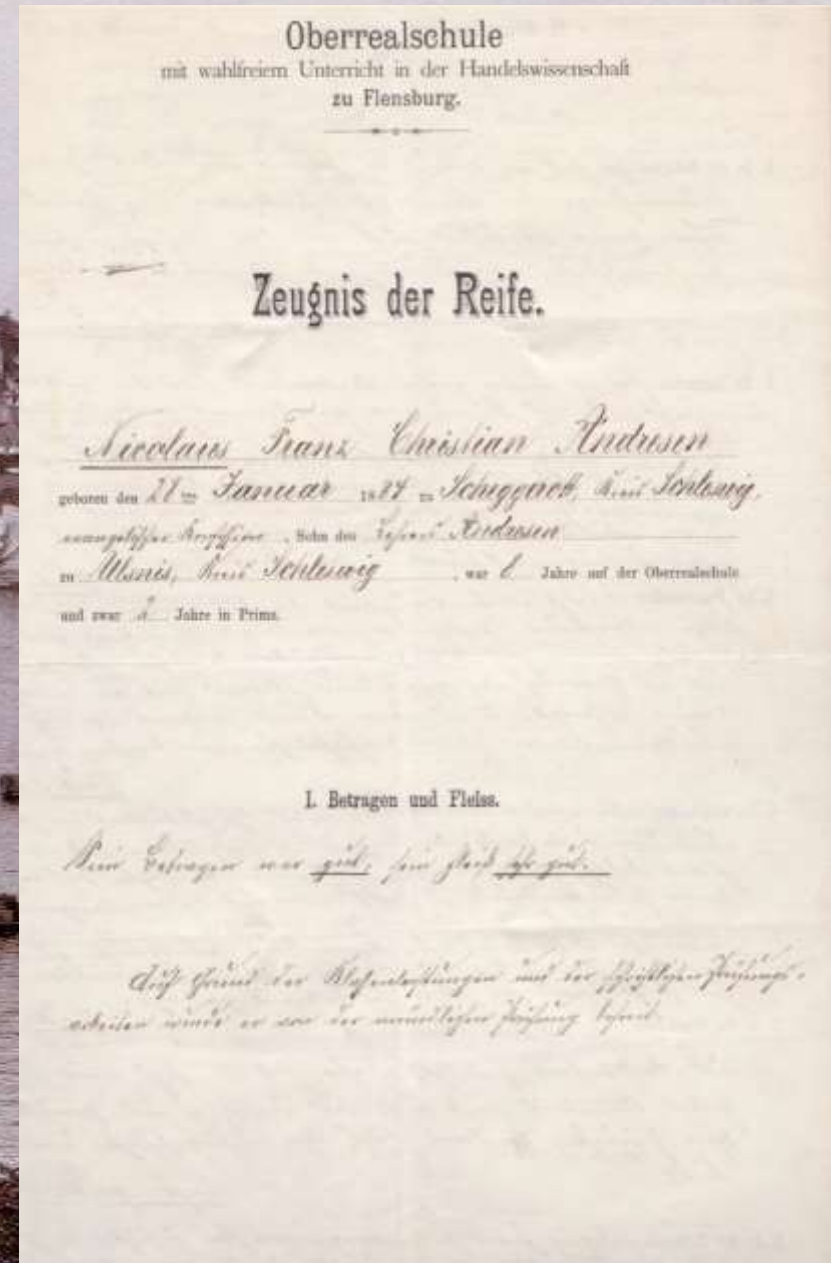 Oberrealschule
mit wahlfreiem Unterricht in der Handelswissenschaft
zu Flensburg.
Zeugnis der Reife.
Nicolaus Franz Christian Andresen
geboren den 28ten Januar 1884 zu Scheggerott, Kreis Schleswig,
evangelischer Konfession, Sohn des Lehrers Andresen
zu Ulsnis, Kreis Schleswig, war 8 Jahre auf der Oberrealschule
und zwar 2 Jahre in Prima.
I. Betragen und Fleiss.
Sein Betragen war gut, sein Fleiß sehr gut.
Auf Grund der Klassenleistungen und der schriftlichen Prüfungs-
arbeiten wurde er von der mündlichen Prüfung befreit.